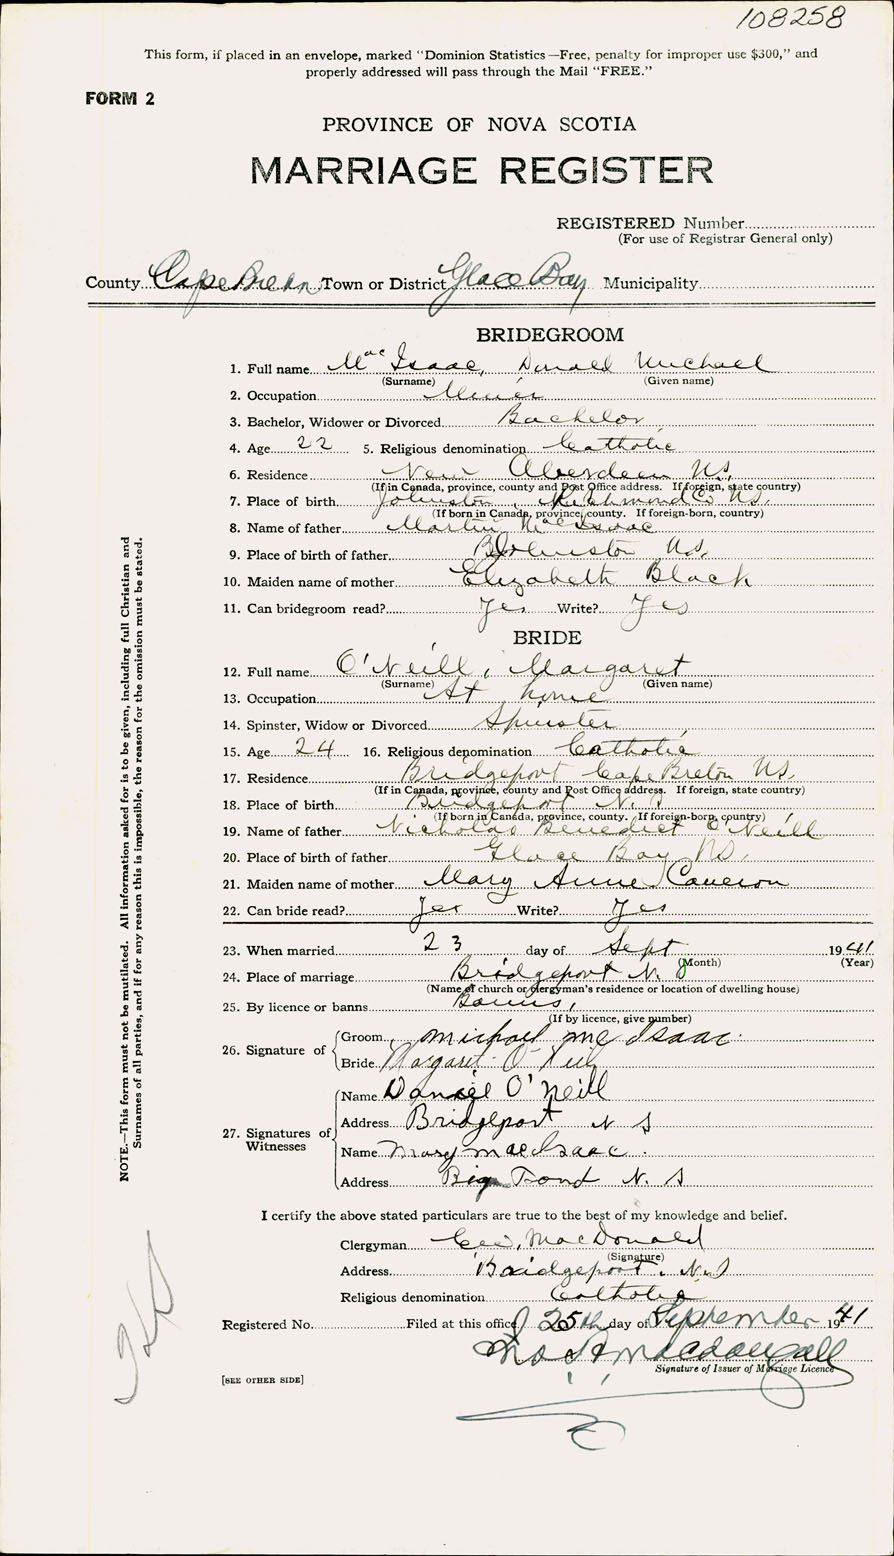 108258
This form, if placed in an envelope, marked "Dominion Statistics—Free, penalty for improper use $300," and
properly addressed will pass through the Mail "FREE."
FORM 2
PROVINCE OF NOVA SCOTIA
MARRIAGE REGISTER
REGISTERED Number
(For use of Registrar General only)
County Cape Breton Town or District Glace Bay Municipality
BRIDEGROOM
1. Full name MacIsaac, Donald Michael
(Surname) (Given name)
2. Occupation Miner
3. Bachelor, Widower or Divorced Bachelor
4. Age 22 5. Religious denomination Catholic
6. Residence New Aberdeen N.S.
(If in Canada, province, county and Post Office address. If foreign, state country)
7. Place of birth Johnston, Richmond Co N.S.
(If born in Canada, province, county. If foreign-born, country)
8. Name of father Martin MacIsaac
9. Place of birth of father Johnston N.S.
10. Maiden name of mother Elizabeth Black
11. Can bridegroom read? Yes Write? Yes
BRIDE
12. Full name O'Neill, Margaret
(Surname) (Given name)
13. Occupation At home
14. Spinster, Widow or Divorced Spinster
15. Age 24 16. Religious denomination Catholic
17. Residence Bridgeport Cape Breton N.S.
(If in Canada, province, county and Post Office address. If foreign, state country)
18. Place of birth Bridgeport N.S
(If born in Canada, province, county. If foreign-born, country)
19. Name of father Nicholas Benedict O'Neill
20. Place of birth of father Glace Bay N.S.
21. Maiden name of mother Mary Anne Cameron
22. Can bride read? Yes Write? Yes
23. When married 23 day of Sept 1941
(Month) (Year)
24. Place of marriage Bridgeport N.S
(Name of church or clergyman's residence or location of dwelling house)
25. By licence or banns Banns,
(If by licence, give number)
26. Signature of Groom Michael McIsaac
Bride Margaret O'Neill
27. Signatures of Witnesses
Name Daniel O'Neill
Address Bridgeport N S
Name Mary MacIsaac
Address Big Pond N. S
I certify the above stated particulars are true to the best of my knowledge and belief.
Clergyman MacDonald
(Signature)
Address Bridgeport, N.S
Religious denomination Catholic
Registered No. Filed at this office 25th day of September 1941
Macdougall
Signature of Issuer of Marriage Licence
[SEE OTHER SIDE]
NOTE.—This form must not be mutilated. All information asked for is to be given, including full Christian and
Surnames of all parties, and if for any reason this is impossible, the reason for the omission must be stated.